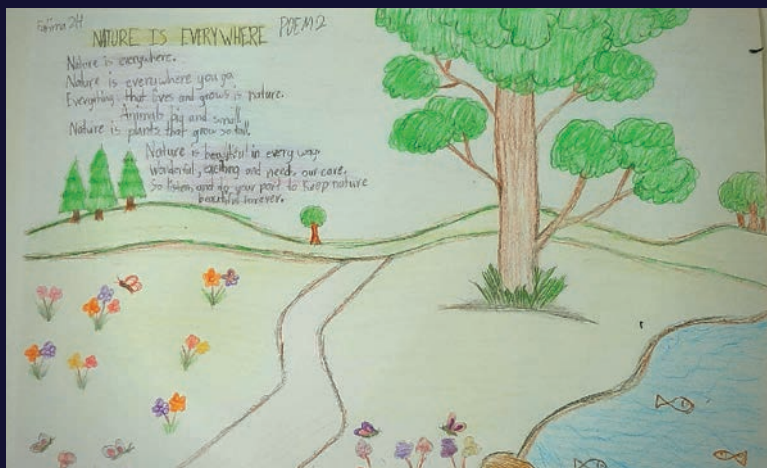 Fatima 2H
NATURE IS EVERYWHERE
POEM 2
Nature is everywhere.
Nature is everywhere you go.
Everything that lives and grows is nature.
Animals big and small.
Nature is plants that grow so tall.
Nature is beautiful in every way.
Wonderful, exciting and needs our care.
So listen, and do your part to Keep nature
beautiful forever.